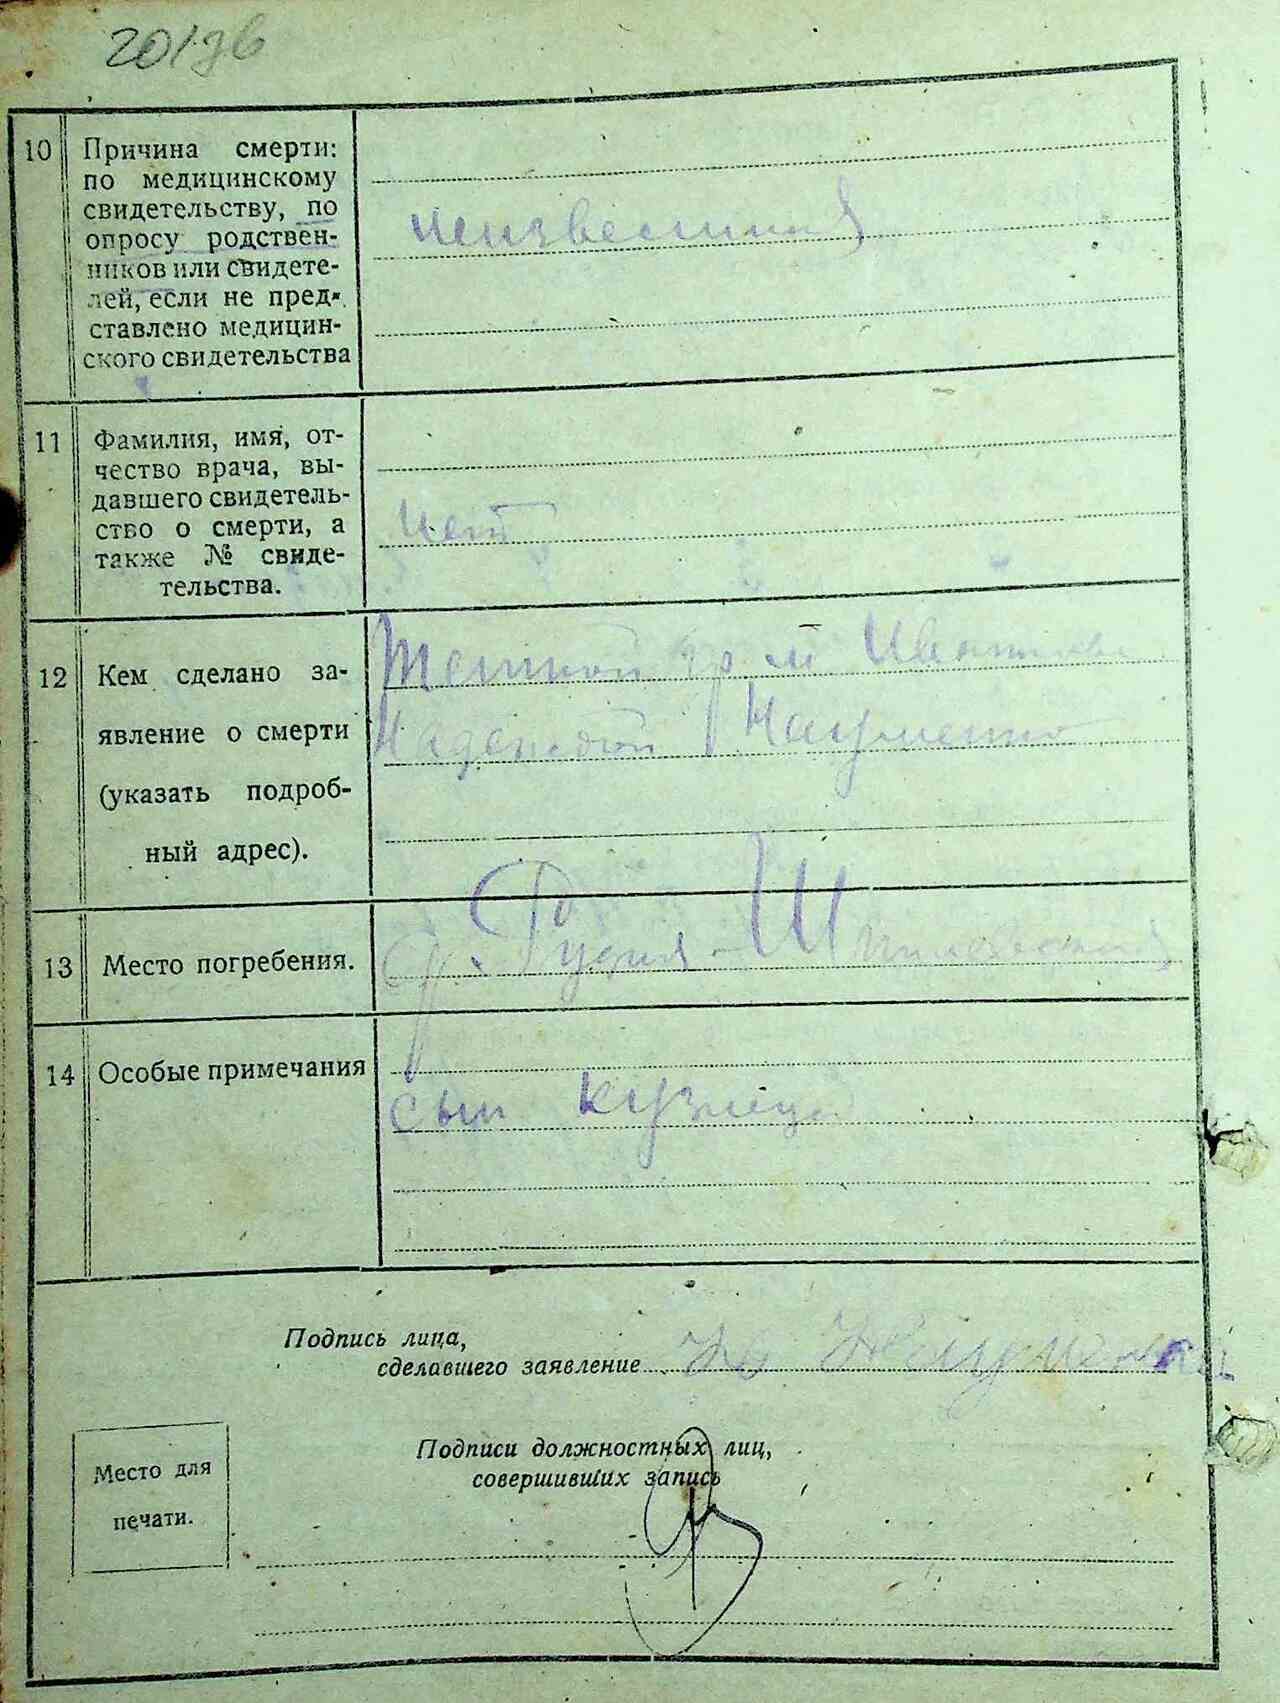 10
Причина смерти:
по медицинскому
свидетельству, по
опросу родствен-
ников или свидете-
лей, если не пред-
ставлено медицин-
ского свидетельства
неизвестна
11
Фамилия, имя, от-
чество врача, вы-
давшего свидетель-
ство о смерти, а
также № свиде-
тельства.
нет
12
Кем сделано за-
явление о смерти
(указать подроб-
ный адрес).
Надеждой Науменко
13
Место погребения.
14
Особые примечания
сын кузнеца
Подпись лица,
сделавшего заявление
Подписи должностных лиц,
совершивших запись
Место для
печати.